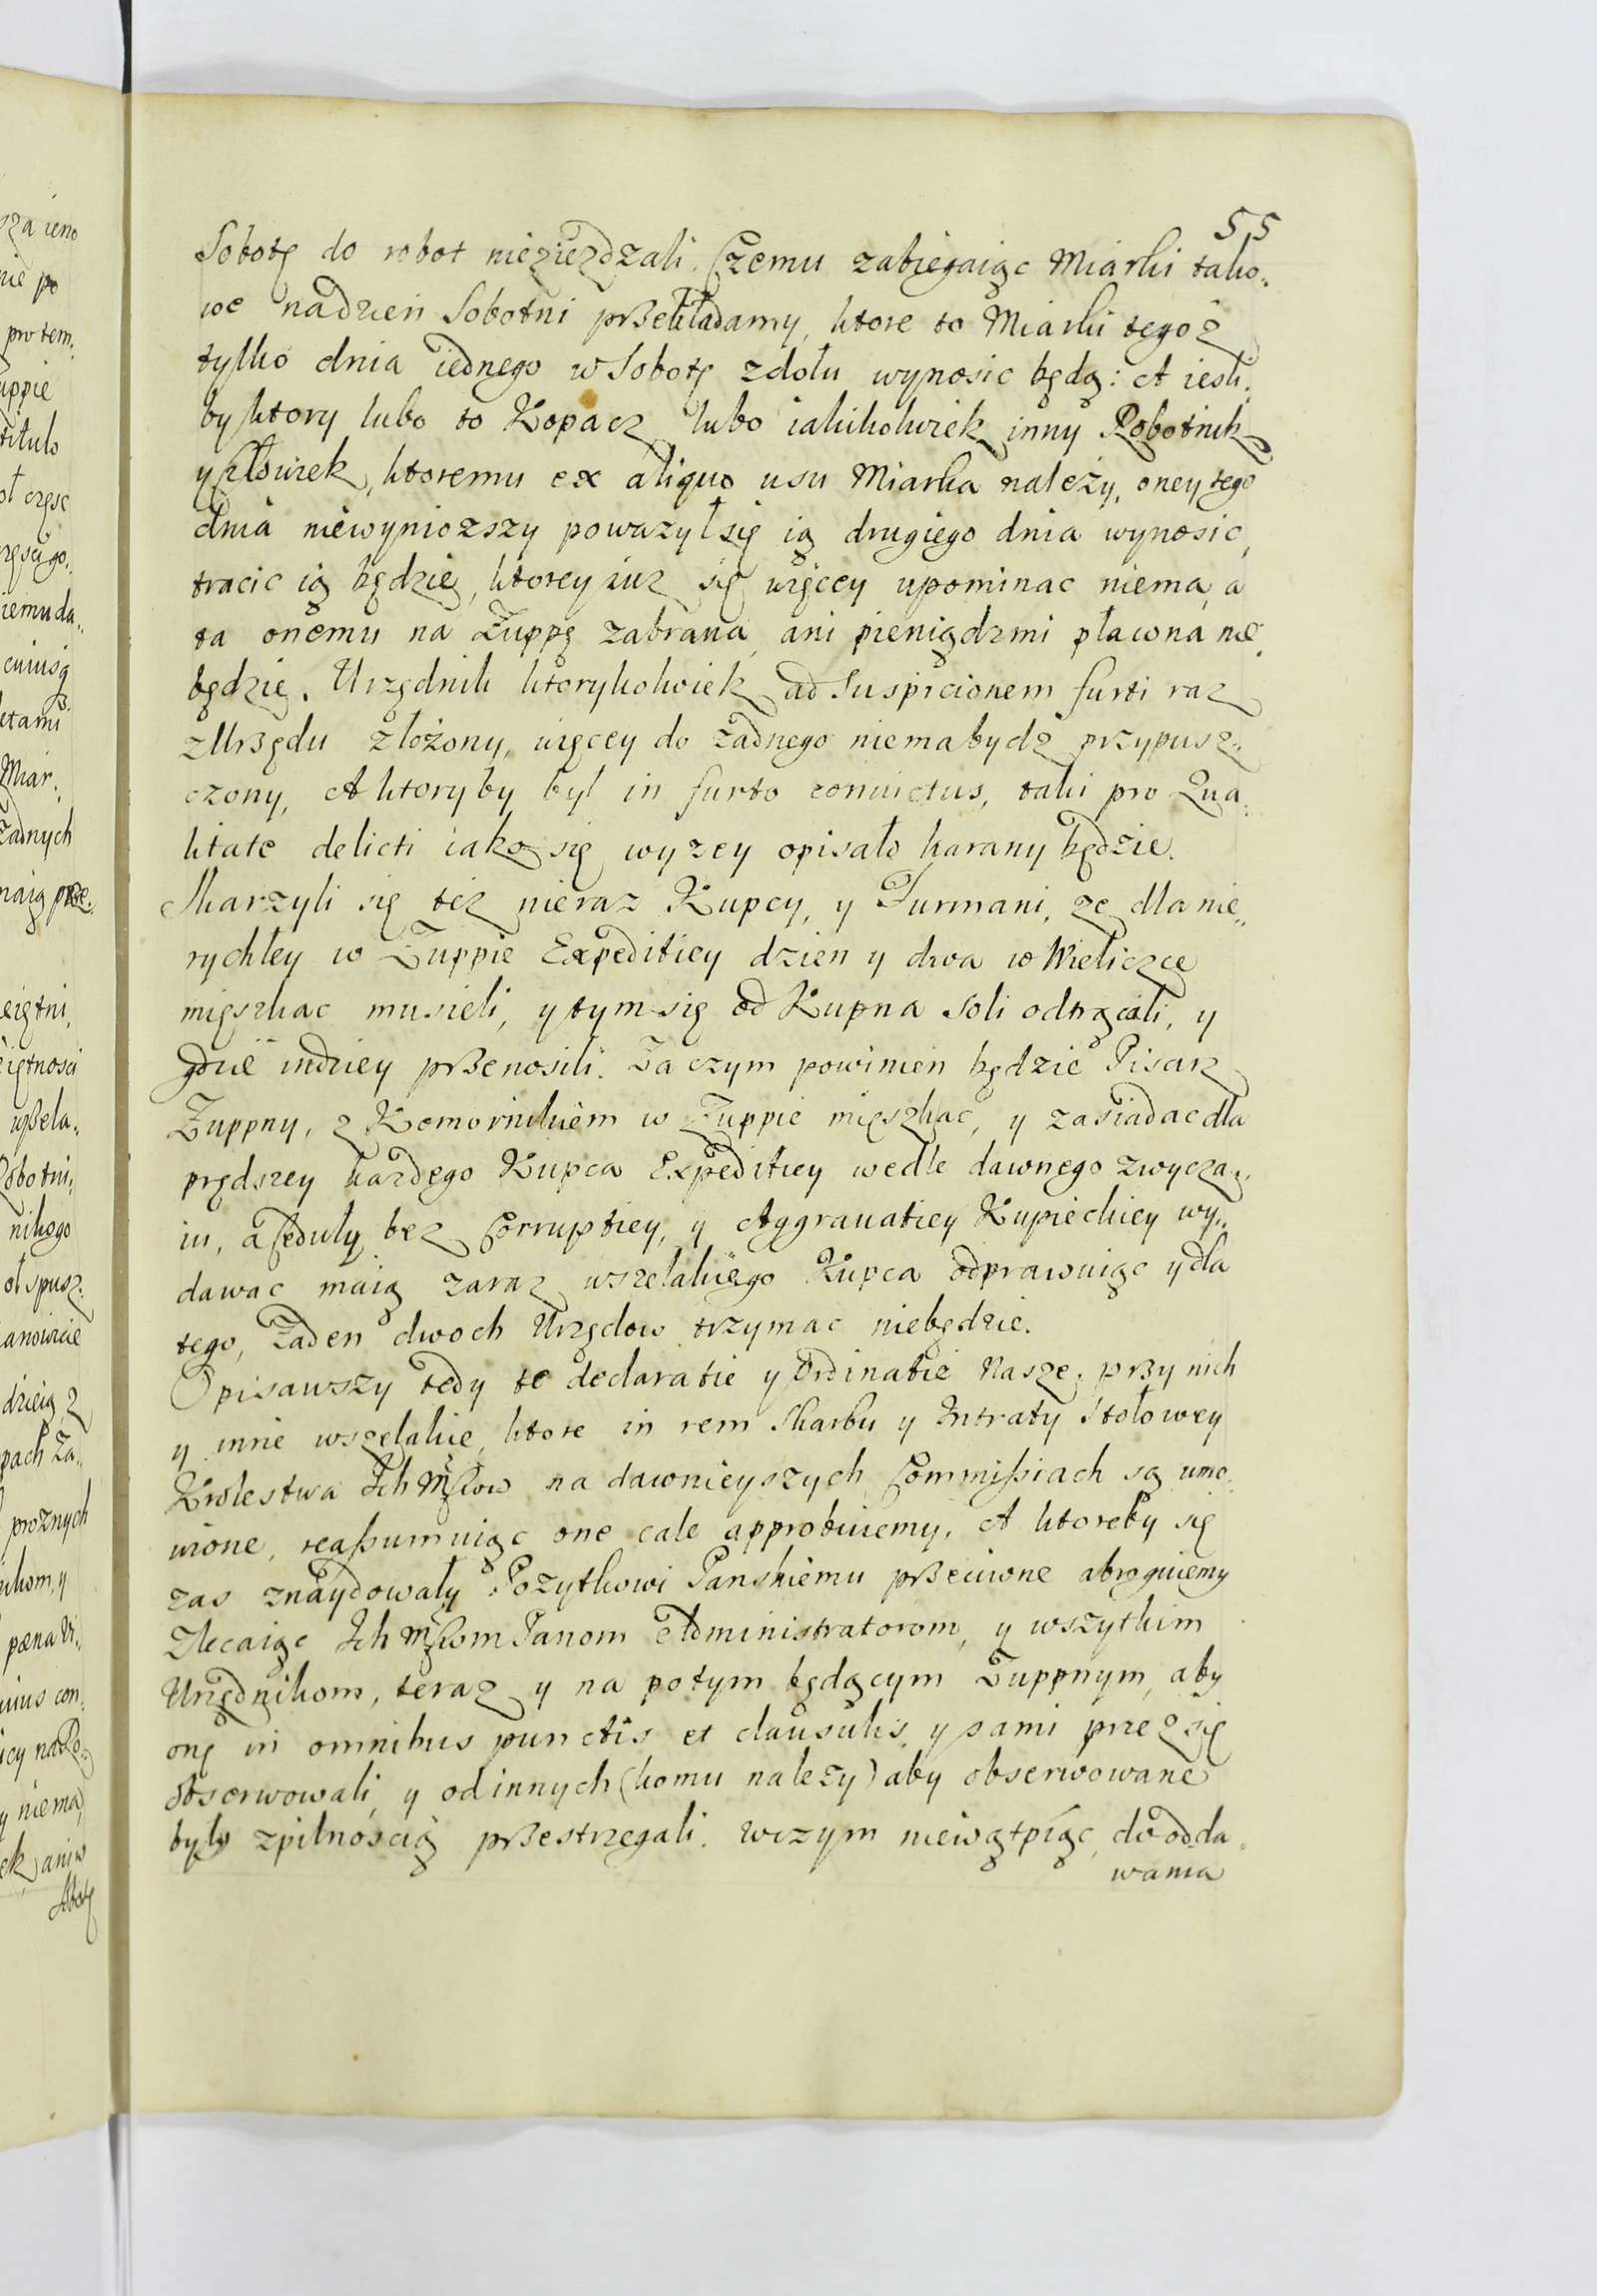 55
Sobotę do robot niezieżdzali. Czemu zabiegaiąc Miarki tako„
we nadzien Sobotni przekładamy, ktore to Miarki tegoż
tylko dnia iednego w Sobotę zdołu wynosic będą: A iesli„
by ktory lubo to Kopacz lubo iakikolwiek inny Robotnik
y człowiek, ktoremu ex aliquo usu Miarka należy, oney tego
dnia niewyniozszy poważył się ią drugiego dnia wynosic,
tracic ią będzie, ktorey iuz się więcey upominac niema, a
ta onemu na Zuppę zabrana, ani pieniądzmi płacona nie
będzie. Urzędnik ktorykolwiek ad Suspicionem furti raz
z Urzędu złożony, więcey do żadnego niema bydz przypusz„
czony, A ktoryby był in furto convictus, taki pro Qua„
litate delicti iako się wyzey opisało karany będzie.
Skarzyli się też nieraz Kupcy, y Furmani, ze dla nie„
rychley w Zuppie Expeditiey dzien y dwa w Wieliczce
mięszkac musieli, y tym się od Kupna Soli odtrącali, y
gdzie indziey przenosili. Zaczym powinien będzie Pisarz
Zuppny, z Komornikiem w Zuppie mięszkac, y zasiadac dla
prędszey kazdego Kupca Expeditiey wedle dawnego zwycza„
iu, a Ceduły bez Corruptiey, y Aggravatiey Kupieckiey wy„
dawac maią zaraz wszelakiego Kupca odprawuiąc y dla
tego, Zaden dwoch Urzędow trzymac niebędzie.
Opisawszy tedy te declaratie y Ordinatie Nasze, przy nich
y inne wszelakie, ktore in rem Skarbu y Intraty Stołowey
Krolestwa Ich Mśćiow na dawnieyszych Commissiach są umo„
wione, reassumuiąc one cale approbuiemy. A ktoreby się
zas znaydowały Pozytkowi Panskiemu przeciwne abroguiemy
Zlecaiąc Ich Mśćiom Panom Administratorom, y wszytkim
Urzędnikom, teraz y na potym będącym Zuppnym, aby
one in omnibus punctis et clausulis, y sami przez się
obserwowali, y od innych (komu należy) aby obserwowane
były zpilnoscią przestrzegali. Wczym niewątpiąc, do odda
wania